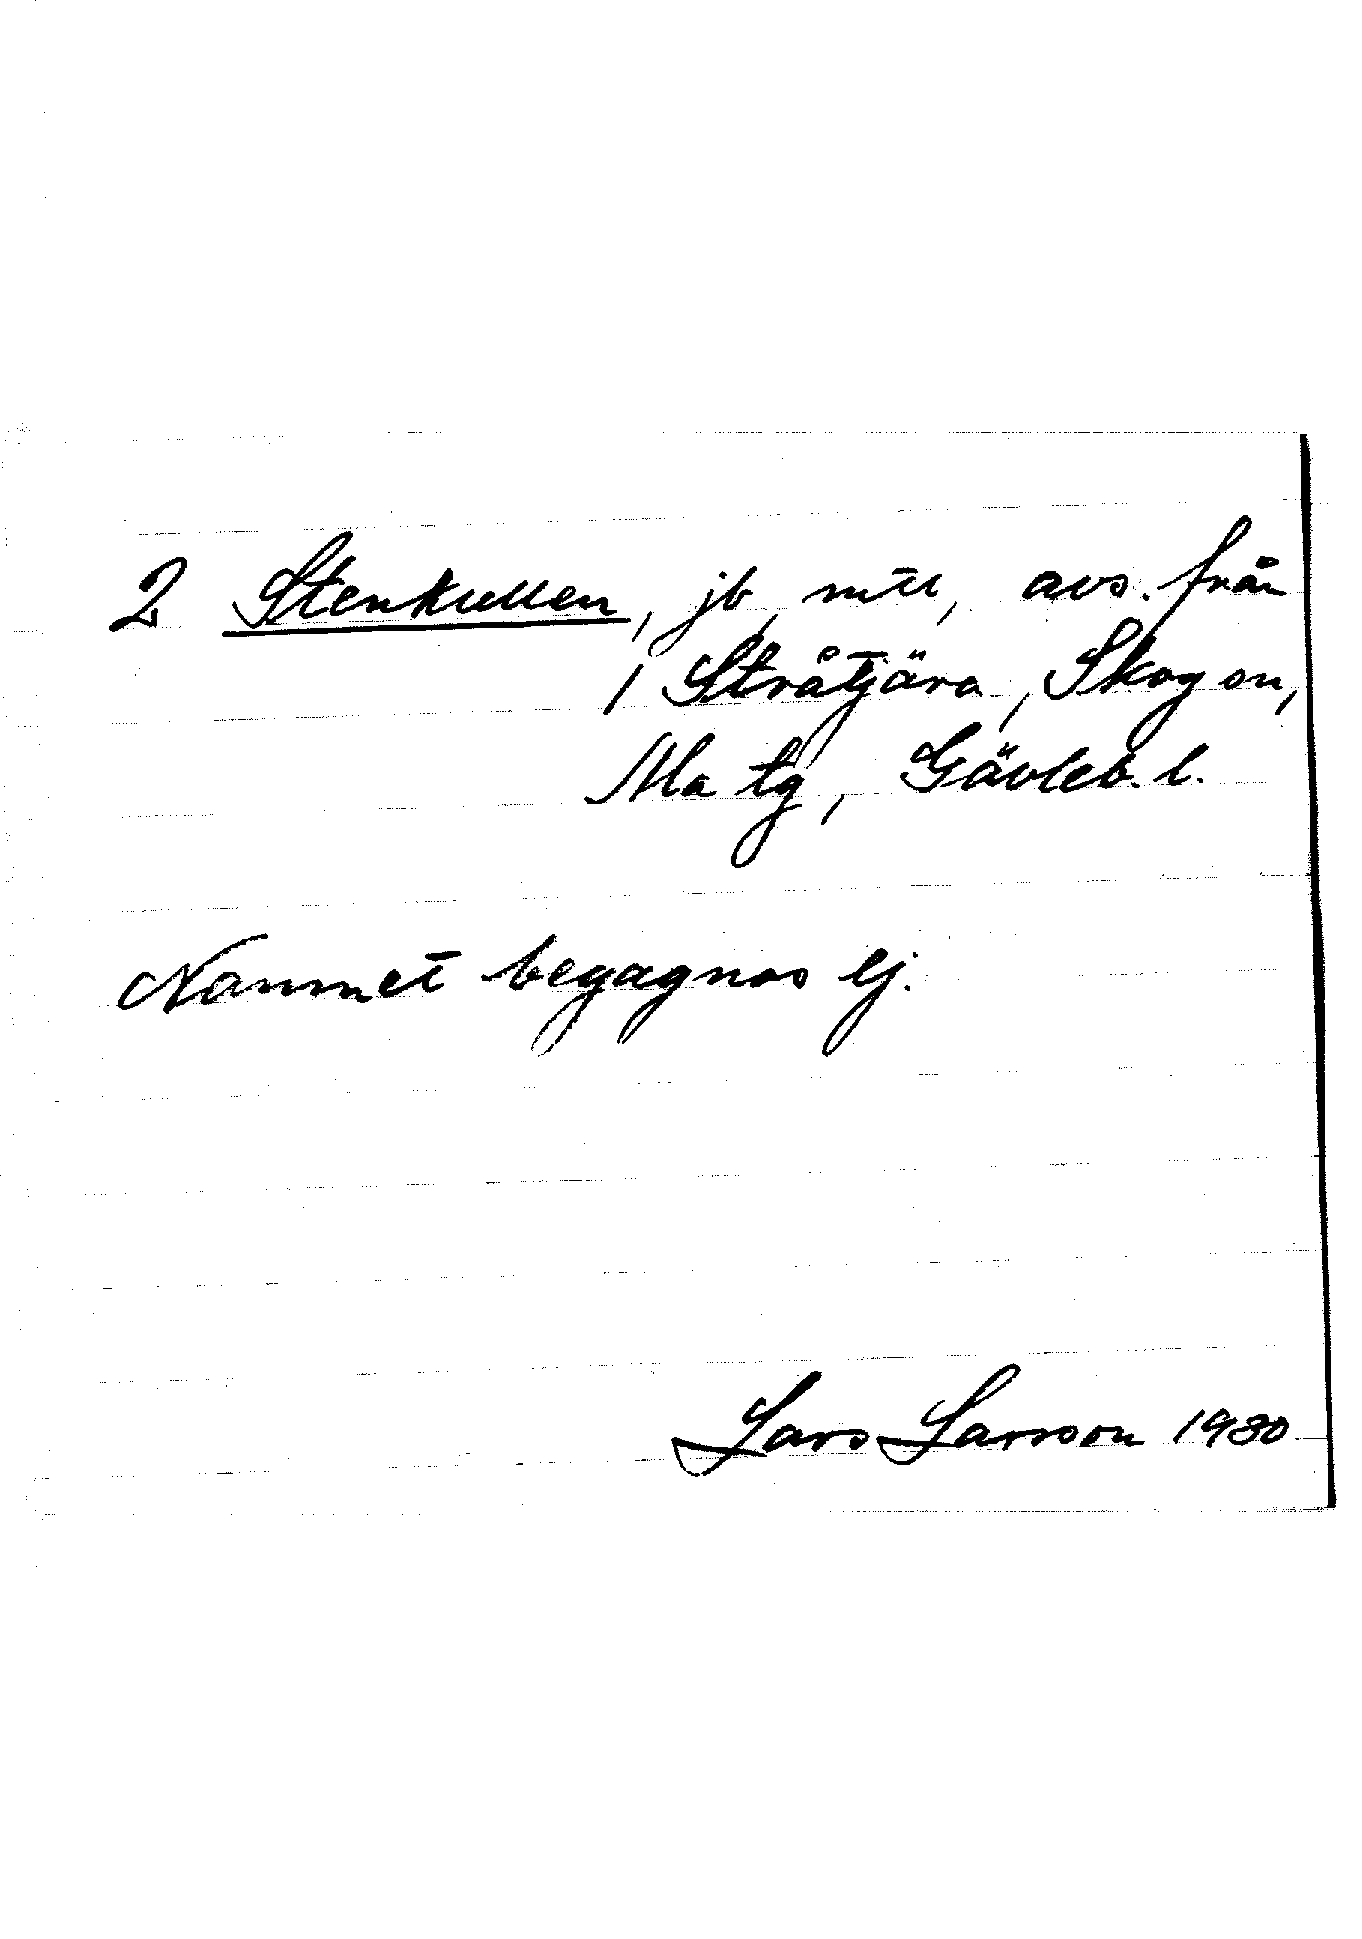 2 Stenkullen, jb, mtl, avs. från
1 Stråtjära, Skog sn,
Ala tg, Gävleb. l.
Namnet begagnas ej.
Lars Larsson 1930